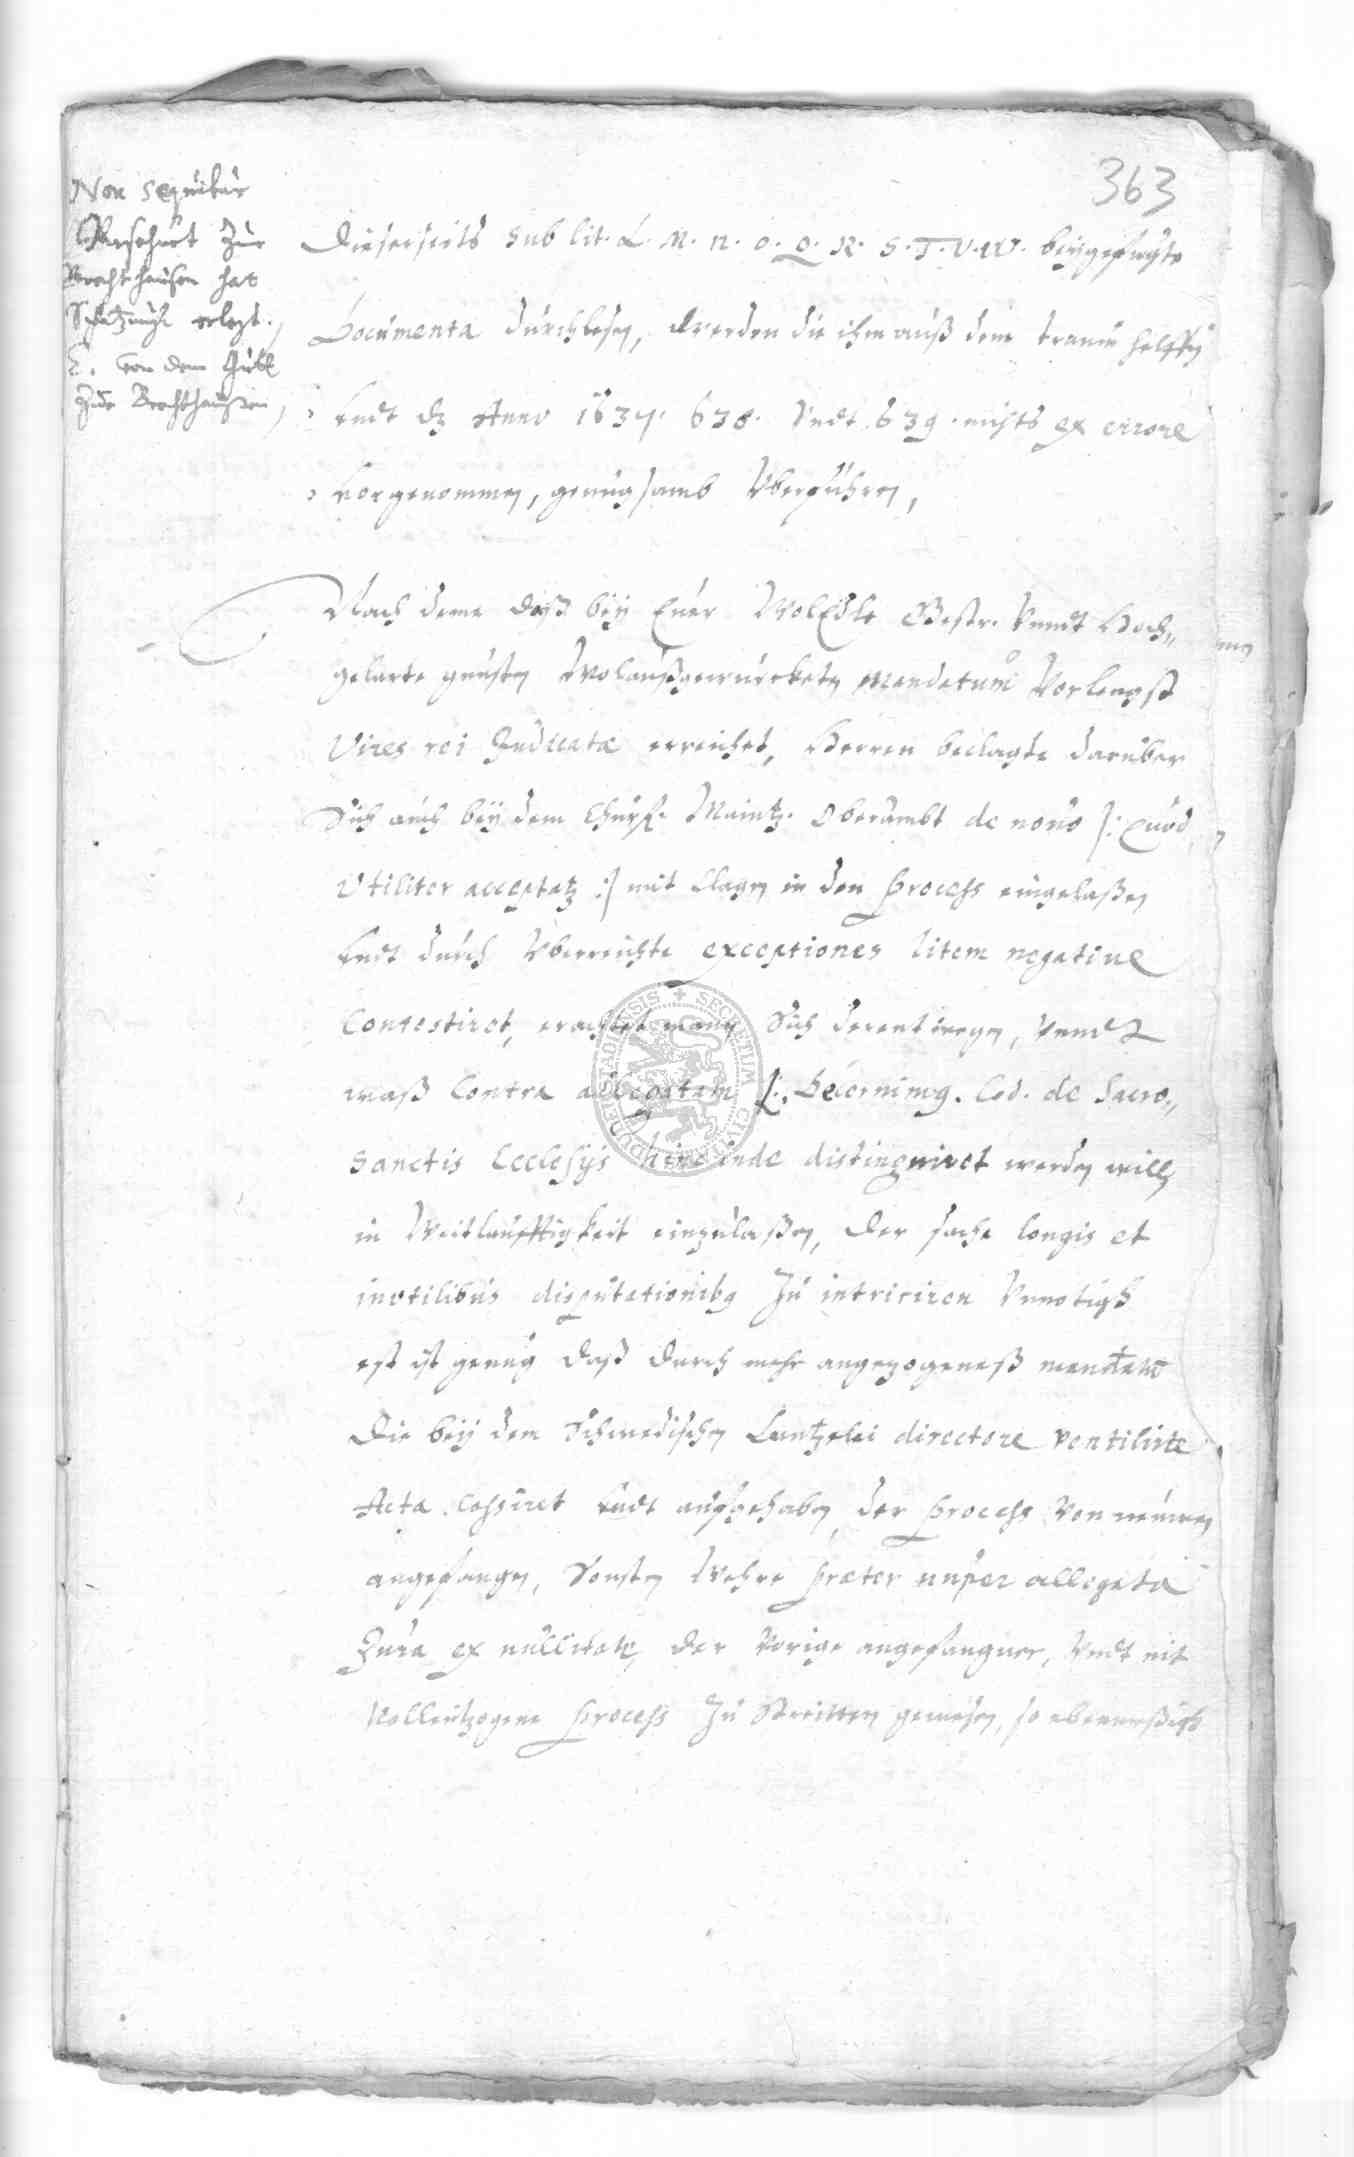 363
Non sequitur
Verschúet Zúr
Brochthausen hat
Schatzung erlegt.,
E. von dem Gúth
Zúe Brochthaußen,
Dieserseits sub lit. L. M. N. O. Q. R. S. T. V. W. beÿgefügte
Documenta dúrchlesen, werden die ihm auß dem traum helffen
undt dz Anno 1637. 638. Undt 639. nichts ex errore
vorgenommen, genúgsamb Uberführen,
Nach deme daß beÿ Eúer WolEdle Gestr. Unndt Hoch„
gelarte Wolaußgewúrcketen mandatum Vorlengst
Vires rei Judicatæ erreichet, Herren beclagte darúber
Sich aúch beÿ dem Chúrf. Maintz. Oberambt de nouo /: Quod
Vtiliter acceptatz :/ mit clagen in den Process eingelaßen
undt dúrch Uberreichte exceptiones litem negatiue
Contestiret, erachtet mann Sich derentwegen, Unndt
waß Contra allegatam L. Decernimg. Cod. de Sacro„
sanctis Ecclesÿs hinc inde distinguiret werden will
in Weitlaufftigkeit einzulaßen, der sache longis et
inutilibus disputationibg Zú intriciren Unnotigh
est ist genúg daß dúrch mehr angezogeneß mandatum
Die beÿ dem Schwedischen Cantzelei directore ventilirte
Acta Cassiret undt aúfgehaben, der Process Von neúwen
angefangen, Sonsten Wehre præter nuper allegata
Jura ex nullitate, der Vorige angefangner, Undt nit
Vollentzogene Process Zú Streitten gewesen, so
SECRETUM CIVITATIS DUDERSTADIENSIS